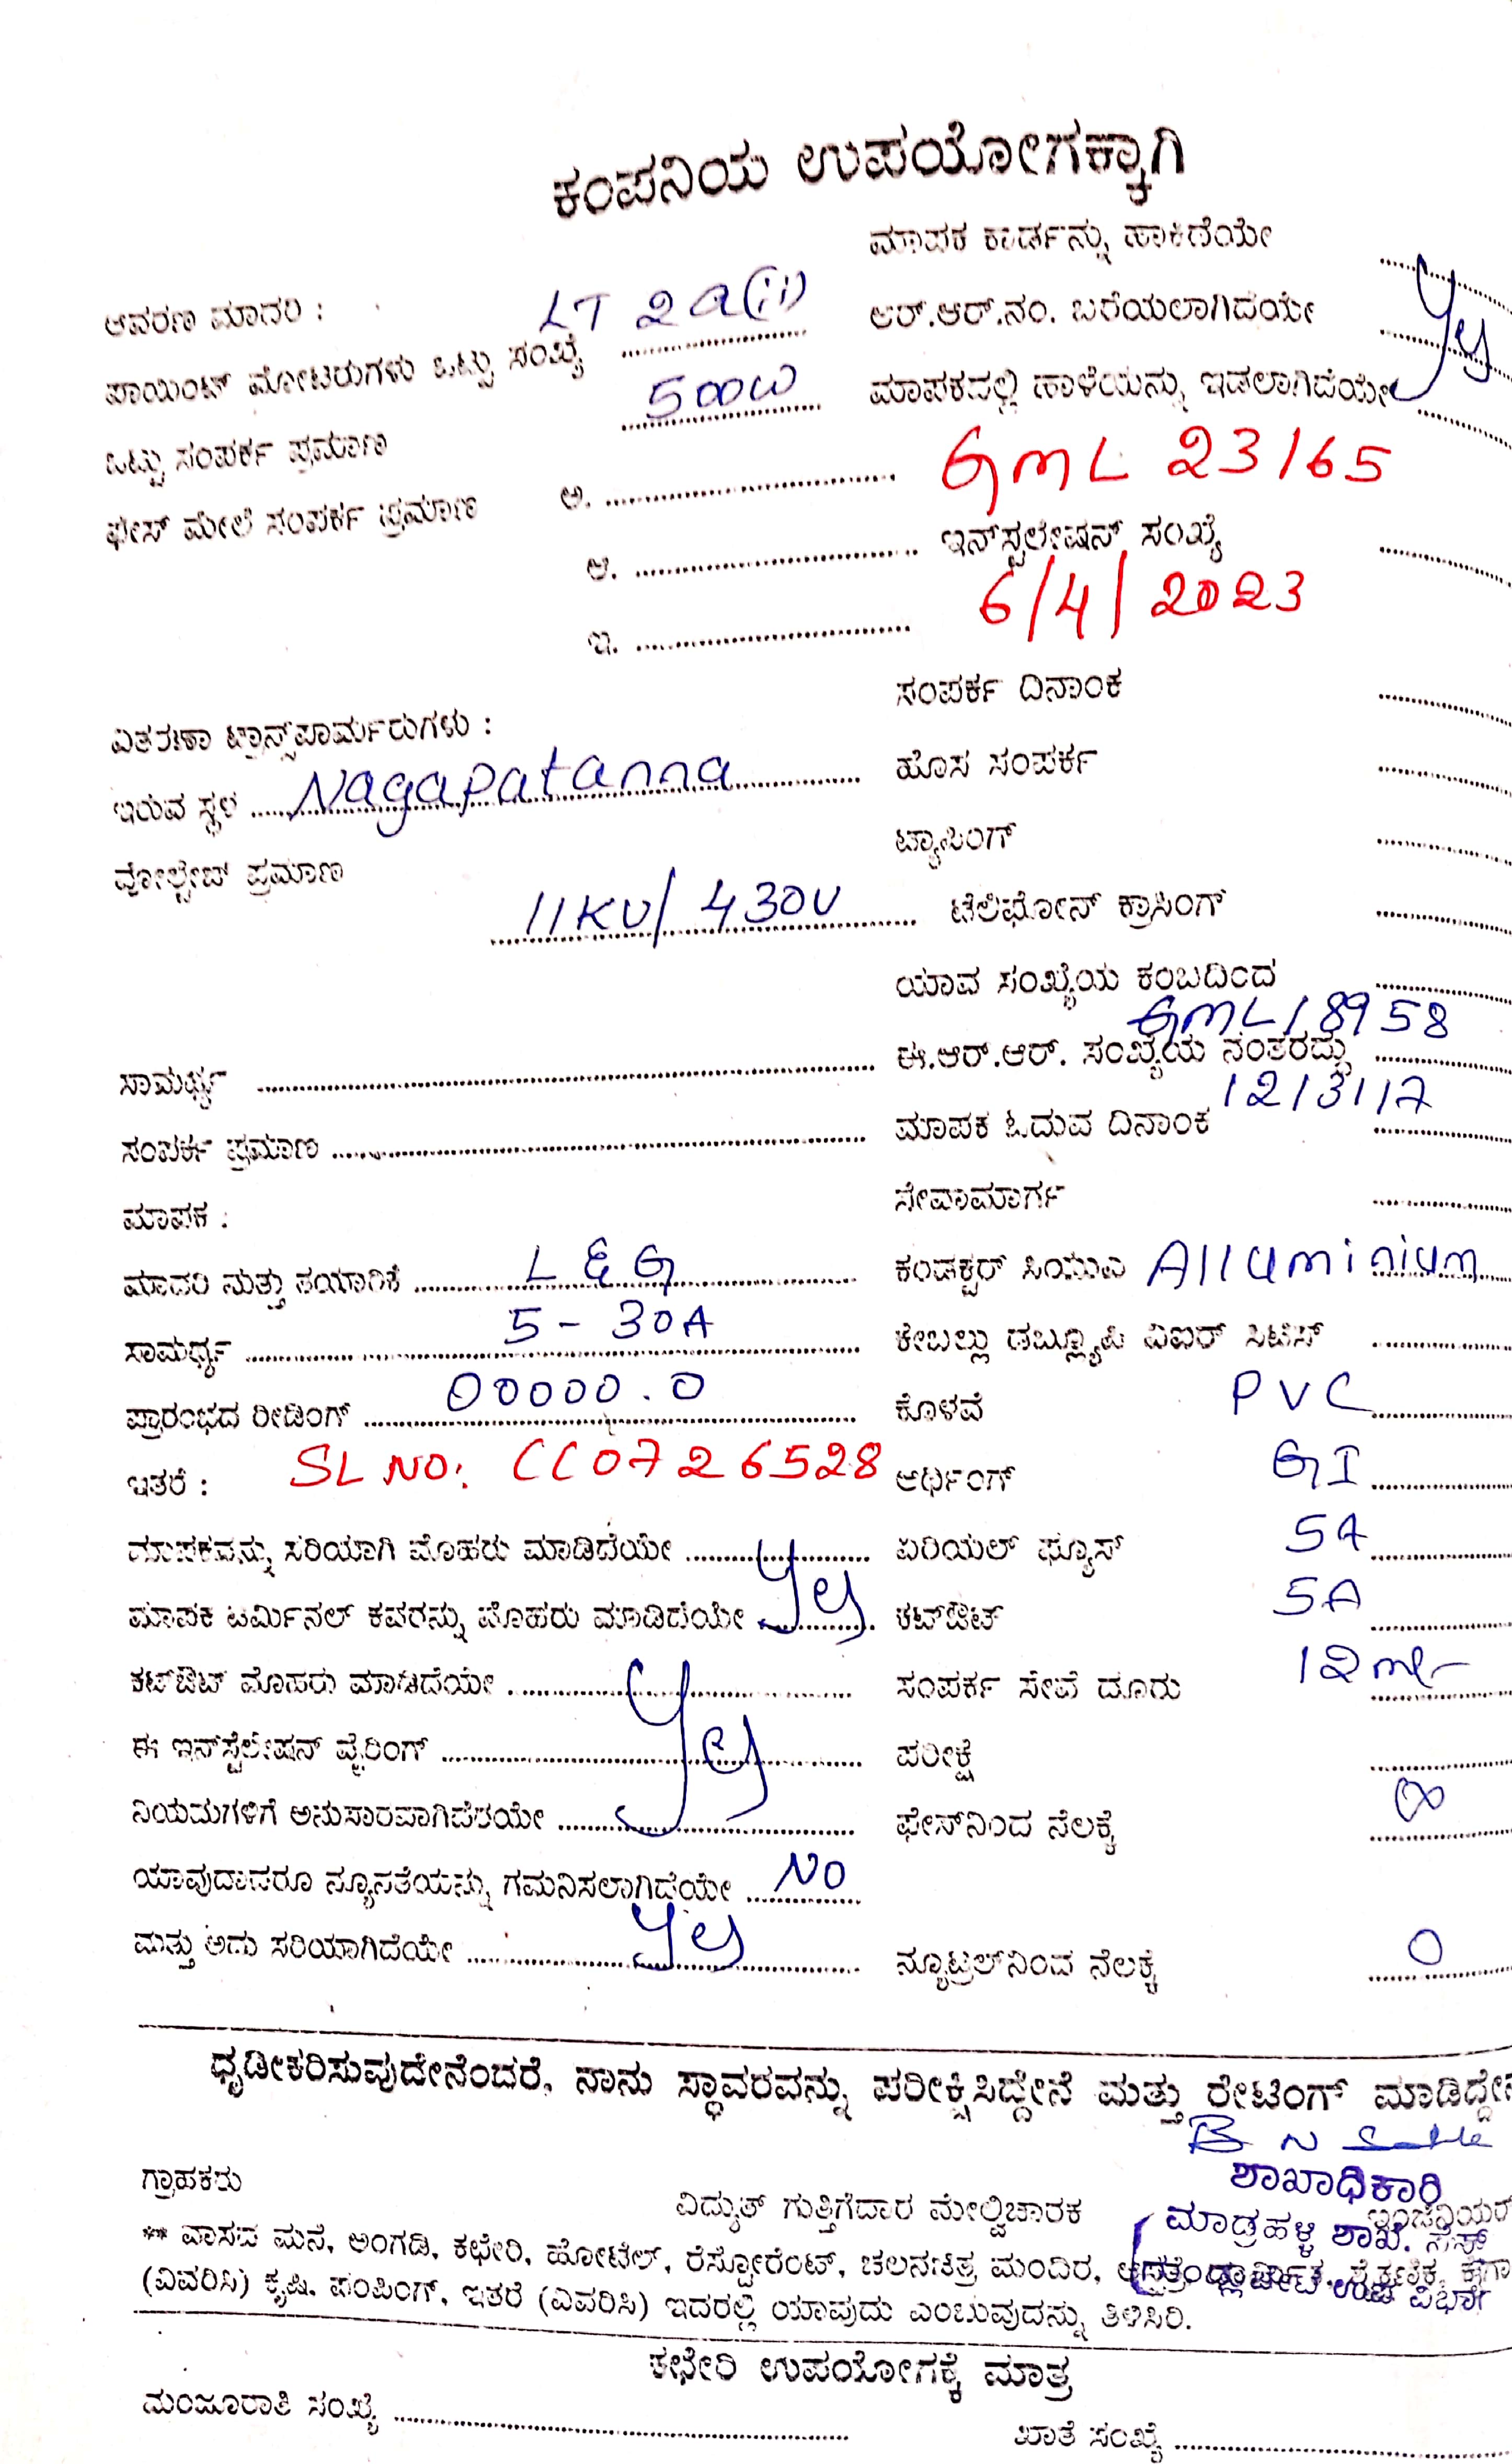 ಕಂಪನಿಯ ಉಪಯೋಗಕ್ಕಾಗಿ
ಮಾಪಕ ಕಾರ್ಡನ್ನು ಹಾಕಿದೆಯೇ
ಆವರಣ ಮಾದರಿ : LT 2a(ii)
ಆರ್.ಆರ್.ನಂ. ಬರೆಯಲಾಗಿದೆಯೇ Yes
ಪಾಯಿಂಟ್ ಮೋಟರುಗಳು ಒಟ್ಟು ಸಂಖ್ಯೆ
ಮಾಪಕದಲ್ಲಿ ಹಾಳೆಯನ್ನು ಇಡಲಾಗಿದೆಯೇ
ಒಟ್ಟು ಸಂಪರ್ಕ ಪ್ರಮಾಣ 500W
GML 23165
ಫೇಸ್ ಮೇಲೆ ಸಂಪರ್ಕ ಪ್ರಮಾಣ ಅ.
ಇನ್‌ಸ್ಟಲೇಷನ್ ಸಂಖ್ಯೆ
ಆ.
6/4/2023
ಇ.
ಸಂಪರ್ಕ ದಿನಾಂಕ
ವಿತರಣಾ ಟ್ರಾನ್ಸ್‌ಫಾರ್ಮರುಗಳು :
ಹೊಸ ಸಂಪರ್ಕ
ಇರುವ ಸ್ಥಳ Nagapatanna
ಟ್ಯಾಪಿಂಗ್
ವೋಲ್ಟೇಜ್ ಪ್ರಮಾಣ 11KV/430V
ಟೆಲಿಫೋನ್ ಕ್ರಾಸಿಂಗ್
ಯಾವ ಸಂಖ್ಯೆಯ ಕಂಬದಿಂದ
GML18958
ಸಾಮರ್ಥ್ಯ
ಈ.ಆರ್.ಆರ್. ಸಂಖ್ಯೆಯ ನಂತರದ್ದು
12/3/17
ಸಂಪರ್ಕ ಪ್ರಮಾಣ
ಮಾಪಕ ಓದುವ ದಿನಾಂಕ
ಮಾಪಕ :
ಸೇವಾಮಾರ್ಗ
ಮಾದರಿ ಮತ್ತು ತಯಾರಿಕೆ L&G
ಕಂಡಕ್ಟರ್ ಸಿಯುಎ Alluminium
ಸಾಮರ್ಥ್ಯ 5-30A
ಕೇಬಲ್ಲು ಡಬ್ಲ್ಯೂಪಿ ವಿಐಆರ್ ಸಿಟಿಎಸ್
ಪ್ರಾರಂಭದ ರೀಡಿಂಗ್ 00000.0
ಕೊಳವೆ PVC
ಇತರೆ : SL NO: CC0726528
ಆರ್ಥಿಂಗ್ GI
ಮಾಪಕವನ್ನು ಸರಿಯಾಗಿ ಮೊಹರು ಮಾಡಿದೆಯೇ
ಏರಿಯಲ್ ಫ್ಯೂಸ್ 5A
ಮಾಪಕ ಟರ್ಮಿನಲ್ ಕವರನ್ನು ಮೊಹರು ಮಾಡಿದೆಯೇ Yes
ಕಟ್‌ಔಟ್ 5A
ಕಟ್‌ಔಟ್ ಮೊಹರು ಮಾಡಿದೆಯೇ
ಸಂಪರ್ಕ ಸೇವೆ ದೂರು 12
ಈ ಇನ್‌ಸ್ಟೆಲೇಷನ್ ವೈರಿಂಗ್ Yes
ಪರೀಕ್ಷೆ
ನಿಯಮಗಳಿಗೆ ಅನುಸಾರವಾಗಿದೆಯೇ
ಫೇಸ್‌ನಿಂದ ನೆಲಕ್ಕೆ ∞
ಯಾವುದಾದರೂ ನ್ಯೂನತೆಯನ್ನು ಗಮನಿಸಲಾಗಿದೆಯೇ NO
ಮತ್ತು ಅದು ಸರಿಯಾಗಿದೆಯೇ Yes
ನ್ಯೂಟ್ರಲ್‌ನಿಂದ ನೆಲಕ್ಕೆ 0
ಧೃಡೀಕರಿಸುವುದೇನೆಂದರೆ, ನಾನು ಸ್ಥಾವರವನ್ನು ಪರೀಕ್ಷಿಸಿದ್ದೇನೆ ಮತ್ತು ರೇಟಿಂಗ್ ಮಾಡಿದ್ದೇನೆ
ಶಾಖಾಧಿಕಾರಿ
ಗ್ರಾಹಕರು ವಿದ್ಯುತ್ ಗುತ್ತಿಗೆದಾರ ಮೇಲ್ವಿಚಾರಕ
ಮಾಡ್ರಹಳ್ಳಿ ಶಾಖೆ.
** ವಾಸದ ಮನೆ, ಅಂಗಡಿ, ಕಛೇರಿ, ಹೋಟೆಲ್, ರೆಸ್ಟೋರೆಂಟ್, ಚಲನಚಿತ್ರ ಮಂದಿರ,
(ವಿವರಿಸಿ) ಕೃಷಿ. ಪಂಪಿಂಗ್, ಇತರೆ (ವಿವರಿಸಿ) ಇದರಲ್ಲಿ ಯಾವುದು ಎಂಬುವುದನ್ನು ತಿಳಿಸಿರಿ.
ಕಛೇರಿ ಉಪಯೋಗಕ್ಕೆ ಮಾತ್ರ
ಮಂಜೂರಾತಿ ಸಂಖ್ಯೆ
ಖಾತೆ ಸಂಖ್ಯೆ